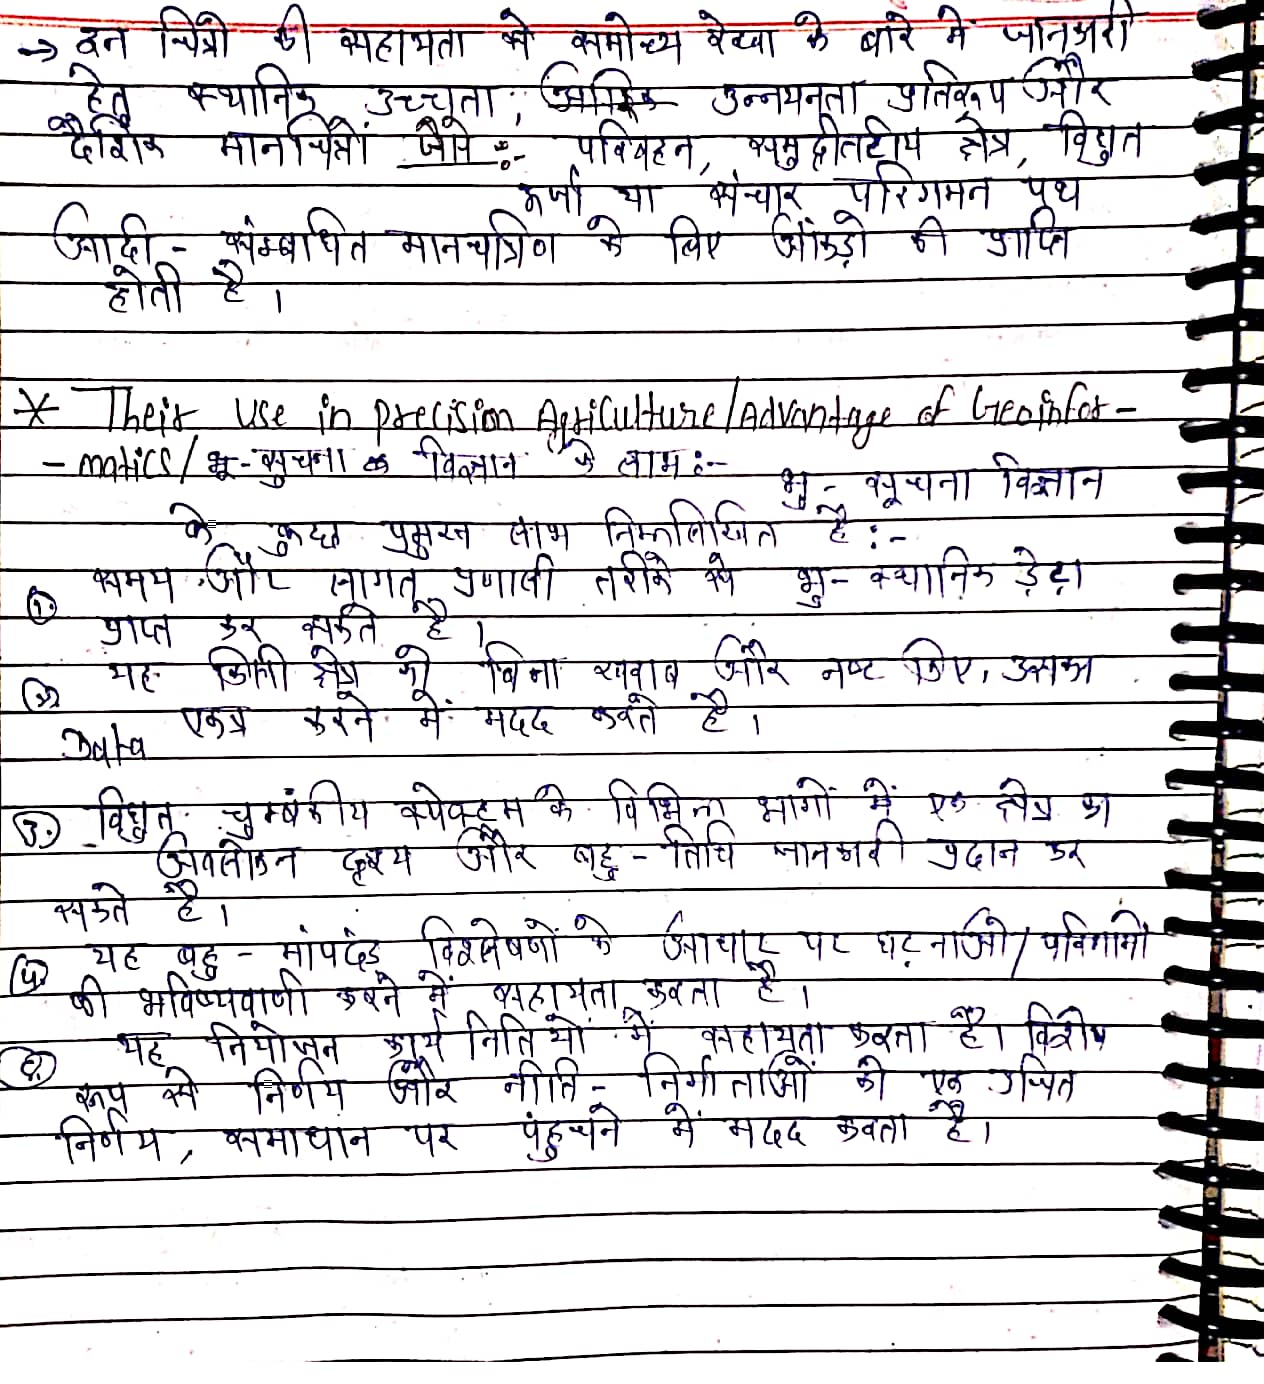 → इन चित्रों की सहायता से समोच्य रेखा के बारे में जानकारी
हेतु स्थानिक उच्चता, उन्नयनता प्रतिरूप और
दैशिक मानचित्रों जैसे :- परिवहन, समुद्रीतटीय क्षेत्र, विधुत
ऊर्जा या संचार परिगमन पथ
आदी - सम्बाधित मानचत्रिण के लिए आँकड़ो की प्राप्ति
होती है ।
* Their Use in precision Agriculture/Advantage of Geoinfor-
- matics/ भू-सुचना क विज्ञान के लाभ :-
भु - सूचना विज्ञान
के कुछ प्रमुख लाभ निम्नलिखित है :-
① समय और लागत प्रणाली तरीके से भु - स्थानिक डेटा
प्राप्त कर सकते है ।
② यह किसी क्षेत्र को बिना खराब और नष्ट किए, उसका
Data एकत्र करने में मदद करते है ।
3. विधुत चुम्बंकीय स्पेक्ट्रम के विभिन्न भागों में एक क्षेत्र का
अवलोकन दृश्य और बहु - तिथि जानकारी प्रदान कर
सकते है ।
4. यह बहु - मांपदंड विश्लेषणों के आधार पर घटनाओ/परिणामो
की भविष्यवाणी करने में सहायता करता है ।
यह नियोजन कार्य नितियों में सहायता करता है। विशेष
रूप से निर्णय और नीति - निर्माताओं को एक उचित
निर्णय, समाधान पर पंहुचने में मदद करता है।